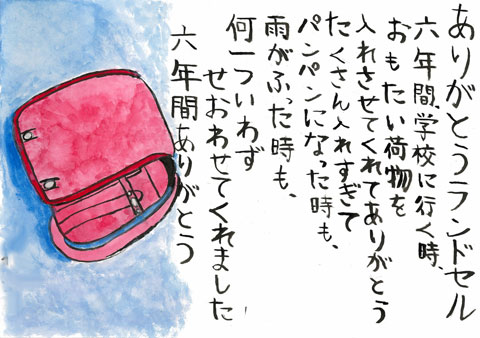 ありがとうランドセル
六年間、学校に行く時、
おもたい荷物を
入れさせてくれてありがとう
たくさん入れすぎて
パンパンになった時も、
雨がふった時も、
何一ついわず
せおわせてくれました
六年間ありがとう